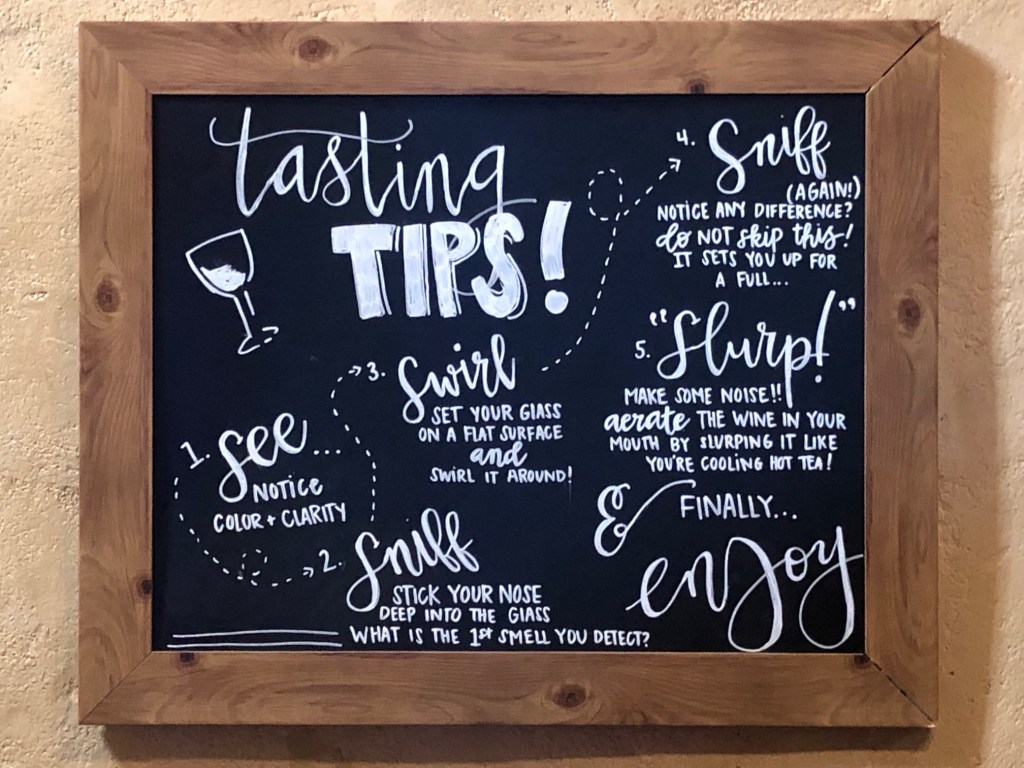 tasting
TIPS!
1. See...
NOTICE
COLOR + CLARITY
2. Sniff
STICK YOUR NOSE
DEEP INTO THE GLASS
WHAT IS THE 1st SMELL YOU DETECT?
3. Swirl
SET YOUR GLASS
ON A FLAT SURFACE
and
SWIRL IT AROUND!
4. Sniff
(AGAIN!)
NOTICE ANY DIFFERENCE?
do NOT skip this!
IT SETS YOU UP FOR
A FULL...
5. "Slurp!"
MAKE SOME NOISE!!
aerate THE WINE IN YOUR
MOUTH BY SLURPING IT LIKE
YOU'RE COOLING HOT TEA!
& FINALLY...
enjoy